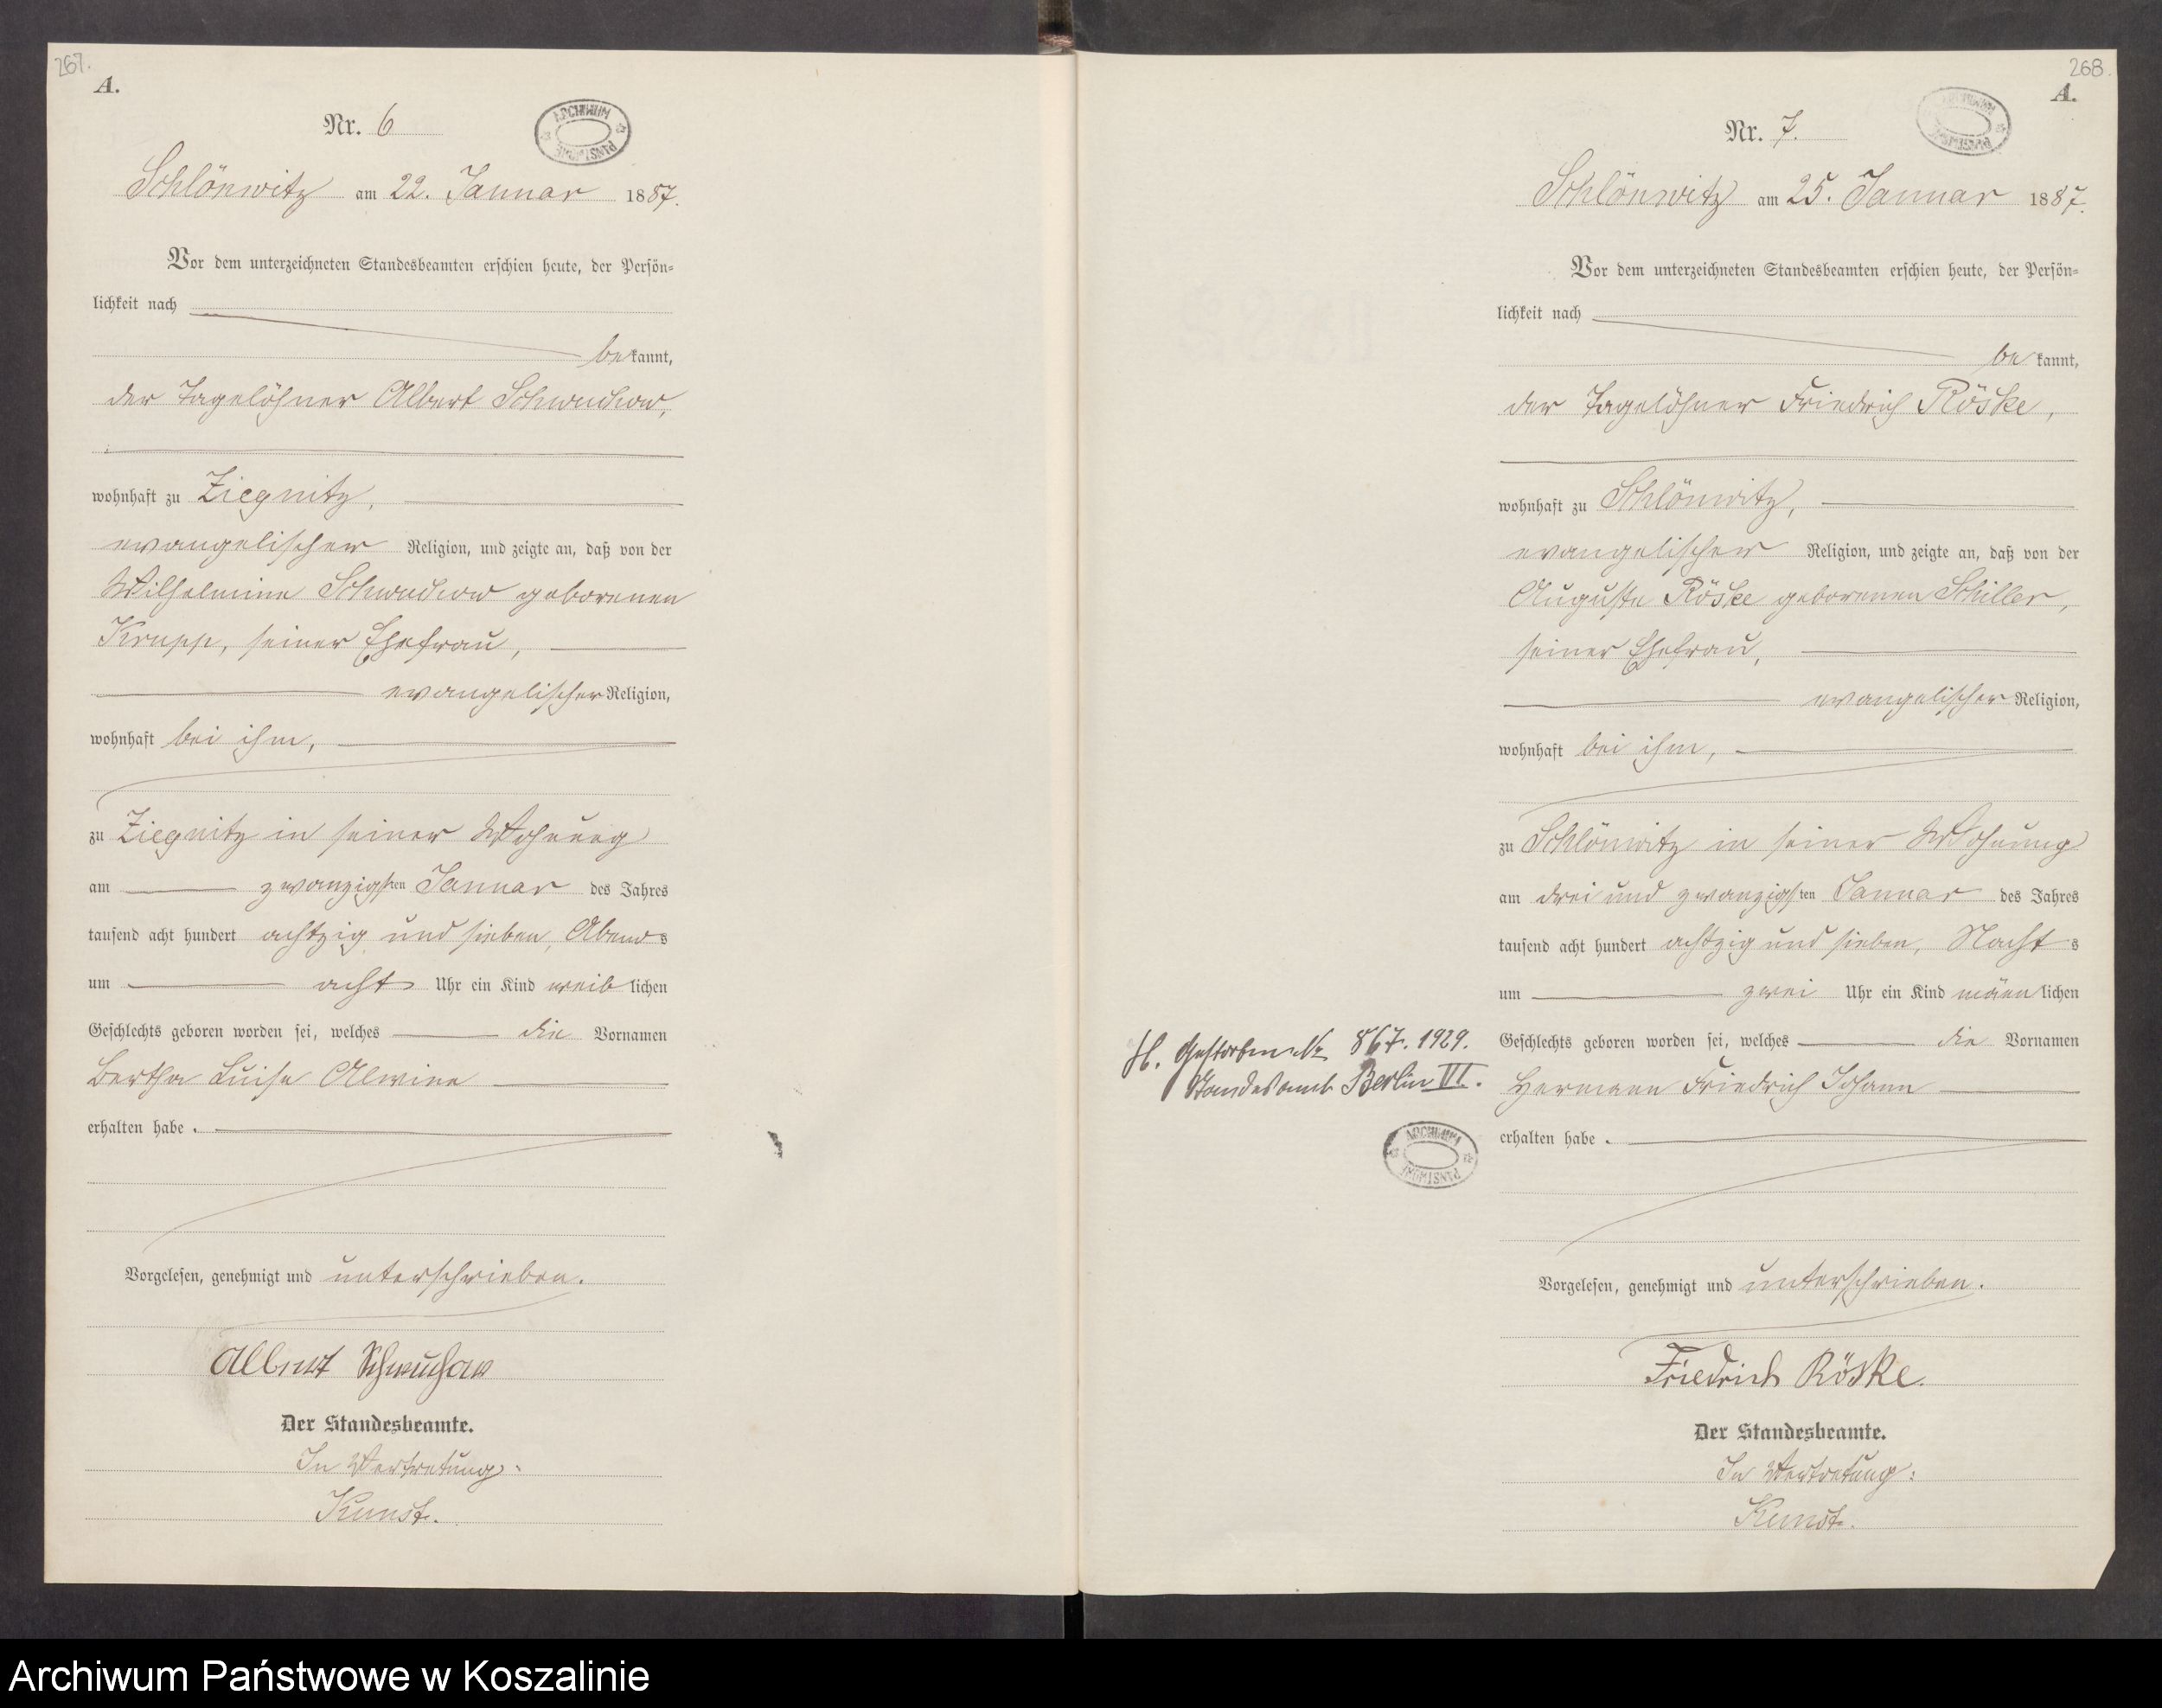 267.
A.
Nr. 6
ARCHIWUM PAŃSTWOWE
Schlönwitz am 22. Januar 1887.
Vor dem unterzeichneten Standesbeamten erschien heute, der Persön=
lichkeit nach
bekannt,
der Tagelöhner Albert Schwuchow,
wohnhaft zu Ziegnitz,
evangelischer Religion, und zeigte an, daß von der
Wilhelmine Schwuchow geborenen
Krupp, seiner Ehefrau,
evangelischer Religion,
wohnhaft bei ihm,
zu Ziegnitz in seiner Wohnung
am zwanzigsten Januar des Jahres
tausend acht hundert achtzig und sieben, Abends
um acht Uhr ein Kind weiblichen
Geschlechts geboren worden sei, welches die Vornamen
Bertha Luise Alwine
erhalten habe.
Vorgelesen, genehmigt und unterschrieben.
Albert Schwuchow
Der Standesbeamte.
In Vertretung:
Kunst.
268.
A.
Nr. 7.
ARCHIWUM PAŃSTWOWE
Schlönwitz am 25. Januar 1887.
Vor dem unterzeichneten Standesbeamten erschien heute, der Persön=
lichkeit nach
bekannt,
der Tagelöhner Friedrich Röske,
wohnhaft zu Schlönwitz,
evangelischer Religion, und zeigte an, daß von der
Auguste Röske geborenen Schiller,
seiner Ehefrau,
evangelischer Religion,
wohnhaft bei ihm,
zu Schlönwitz in seiner Wohnung
am drei und zwanzigsten Januar des Jahres
tausend acht hundert achtzig und sieben, Nachts
um zwei Uhr ein Kind männlichen
Geschlechts geboren worden sei, welches die Vornamen
Hermann Friedrich Johann
erhalten habe.
H. Gestorben Nr 867. 1929.
Standesamt Berlin VI.
ARCHIWUM PAŃSTWOWE
Vorgelesen, genehmigt und unterschrieben.
Friedrich Röske.
Der Standesbeamte.
In Vertretung:
Kunst.
Archiwum Państwowe w Koszalinie